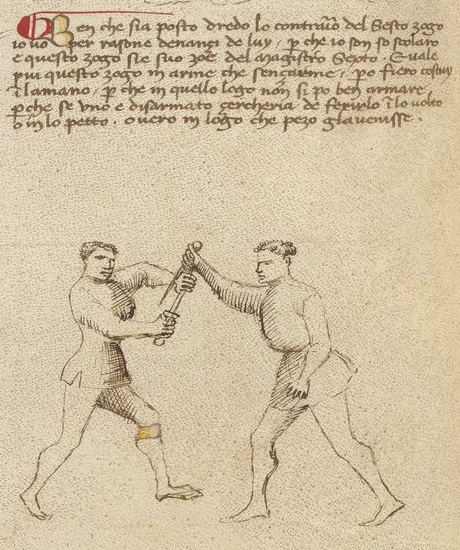 Ben che sia posto dredo lo contrario del Sesto zogo
io vo per rasone denanzi de luy, p che io son so scolaro
e questo zogo sie suo zoe del magistro Sexto. E vale
piu questo zogo in arme che senç'arme, po fiero costuy
ĩ la mano, p che in quello logo non si po ben armare,
p che se uno e disarmato cercheria de ferirlo ĩ lo volto
o in lo petto, o vero in logo che pezo gl'avenisse.